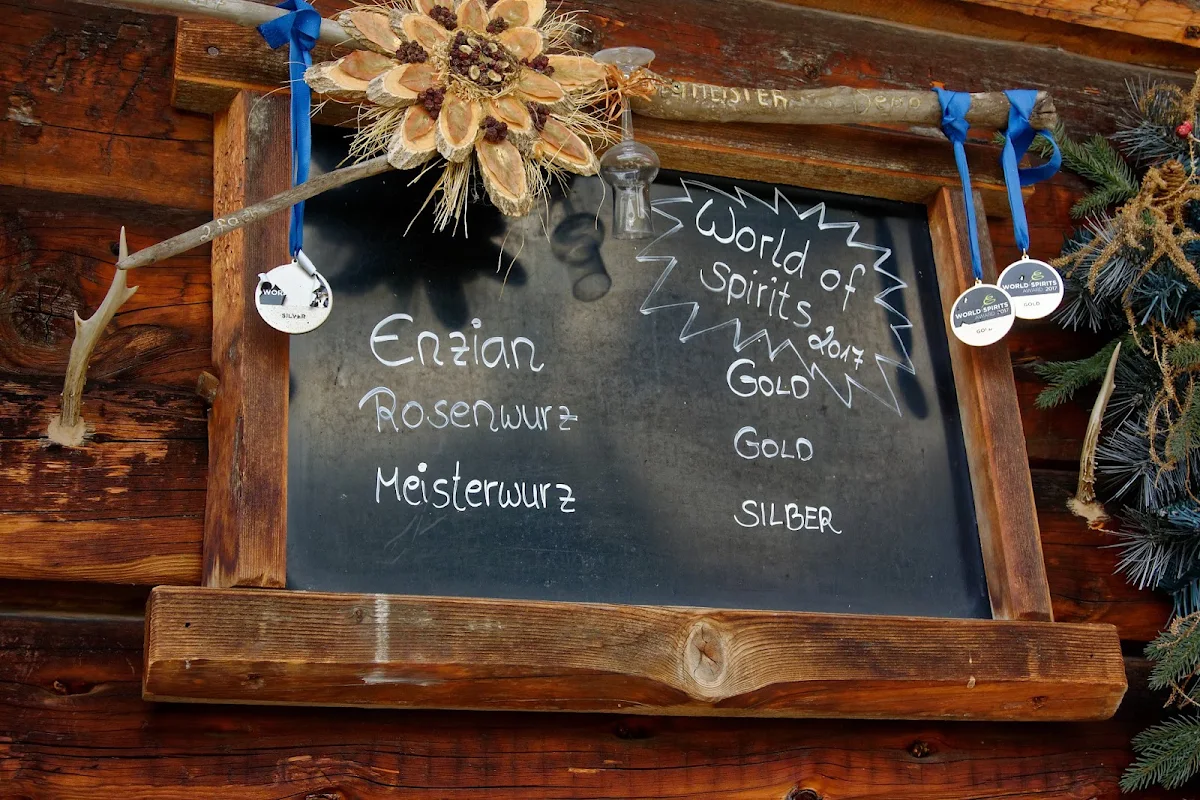 MEISTER
World of
Spirits
2017
Enzian
GOLD
Rosenwurz
GOLD
Meisterwurz
SILBER
SILVER
WORLD SPIRITS
AWARD 2017
GOLD
WORLD SPIRITS
AWARD 2017
GOLD